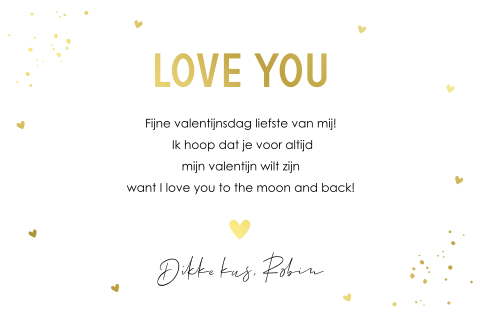 LOVE YOU
Fijne valentijnsdag liefste van mij!
Ik hoop dat je voor altijd
mijn valentijn wilt zijn
want I love you to the moon and back!
Dikke kus, Robin